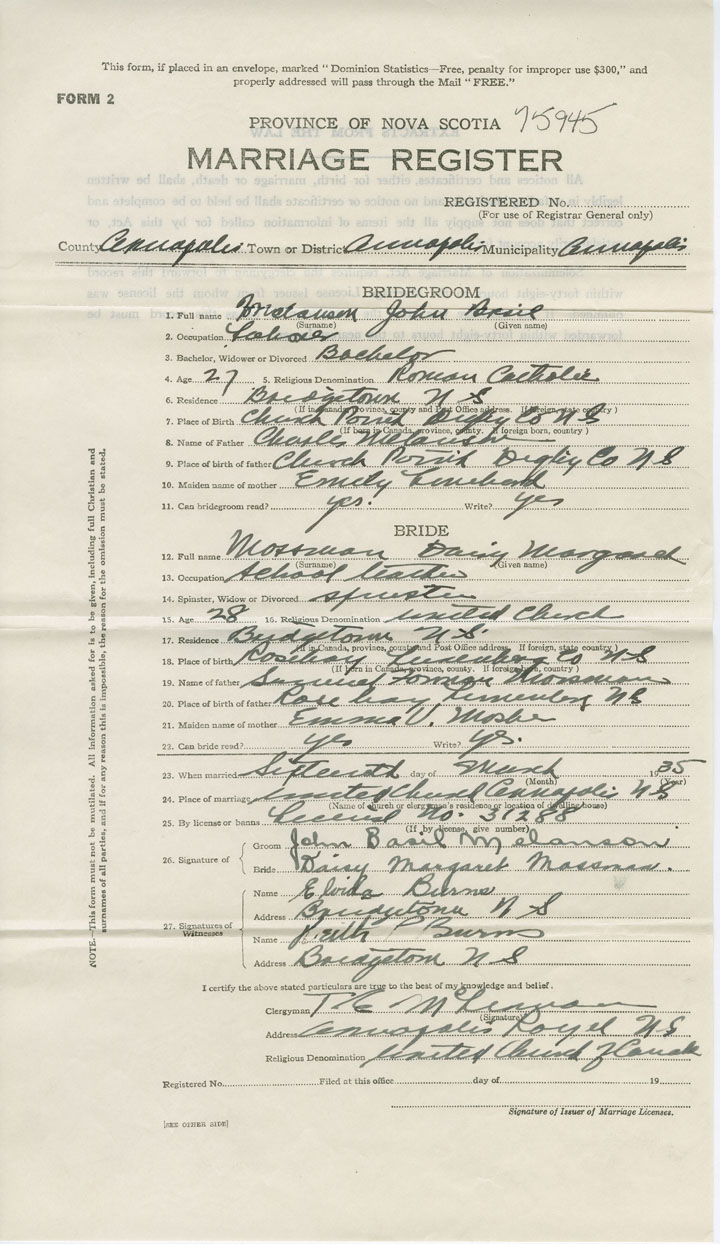 This form, if placed in an envelope, marked "Dominion Statistics—Free, penalty for improper use $300," and
properly addressed will pass through the Mail "FREE."
FORM 2
PROVINCE OF NOVA SCOTIA 75945
MARRIAGE REGISTER
REGISTERED No.
(For use of Registrar General only)
County Annapolis Town or District Annapolis Municipality Annapolis
BRIDEGROOM
1. Full name Melanson John Basil
(Surname) (Given name)
2. Occupation Laborer
3. Bachelor, Widower or Divorced Bachelor
4. Age 27 5. Religious Denomination Roman Catholic
6. Residence Bridgetown N S
(If in Canada, province, county and Post Office address. If foreign, state country)
7. Place of Birth Church Point Digby Co N S
(If born in Canada, province, county. If foreign born, country)
8. Name of Father Charles Melanson
9. Place of birth of father Church Point Digby Co N S
10. Maiden name of mother Emily
11. Can bridegroom read? yes. Write? yes
BRIDE
12. Full name Mossman Daisy Margaret
(Surname) (Given name)
13. Occupation School teacher
14. Spinster, Widow or Divorced spinster
15. Age 28 16. Religious Denomination United Church
17. Residence Bridgetown N S
(If in Canada, province, county and Post Office address. If foreign, state country)
18. Place of birth Rosebay Lunenburg Co N S
(If born in Canada, province, county. If foreign born, country)
19. Name of father Mossman
20. Place of birth of father Rose bay Lunenburg N S
21. Maiden name of mother Emma V. Mosher
22. Can bride read? yes Write? yes.
23. When married Sixteenth day of March 1935
(Month) (Year)
24. Place of marriage United Church Annapolis N S
(Name of church or clergyman's residence or location of dwelling house)
25. By license or banns License No. 31288
(If by license, give number)
26. Signature of
Groom John Basil Melanson
Bride Daisy Margaret Mossman.
27. Signatures of Witnesses
Name Burns
Address Bridgetown N S
Name Keith Burns
Address Bridgetown N S
I certify the above stated particulars are true to the best of my knowledge and belief.
Clergyman
(Signature)
Address Annapolis Royal N S
Religious Denomination United Church of Canada
Registered No. Filed at this office day of 19
Signature of Issuer of Marriage Licenses.
[SEE OTHER SIDE]
NOTE.—This form must not be mutilated. All information asked for is to be given, including full Christian and
surnames of all parties, and if for any reason this is impossible, the reason for the omission must be stated.